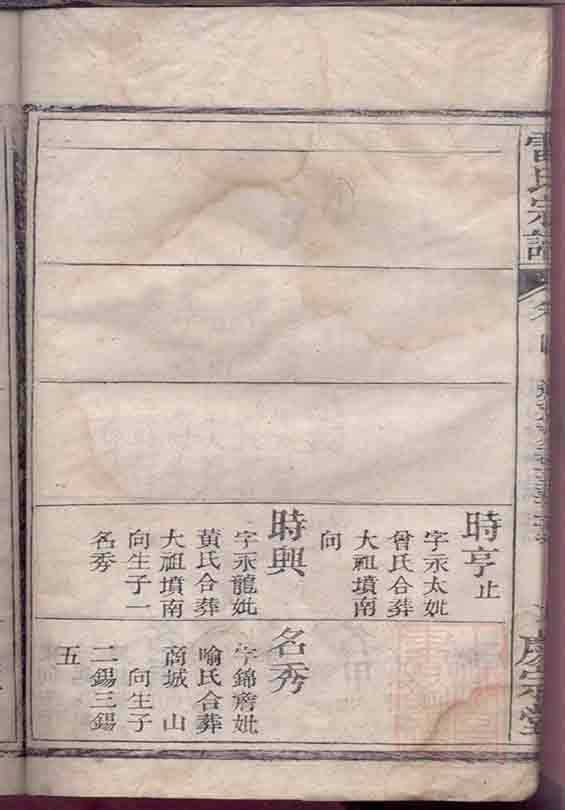 雷氏宗譜
時亨止
字永太妣
曾氏合葬
大祖墳南
向
時興
字永龍妣
黃氏合葬
大祖墳南
向生子一
名秀
名秀
字錦 妣
喻氏合葬
商城 山
向生子
二錫三錫
五
慶宗堂